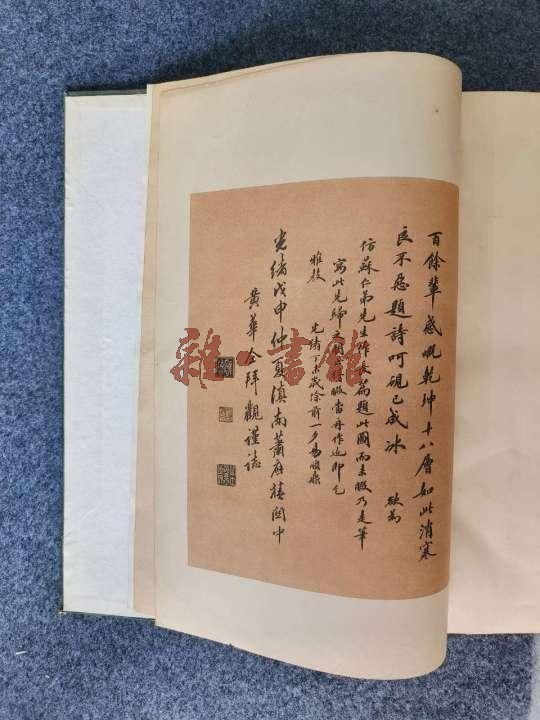 百餘輩感慨乾坤十八層如此消寒
良不惡題詩呵硯已成冰 欲為
仿蘇仁弟先生作長篇題此圖而未暇乃走筆
寫此先歸之暇當再作也即乞
雅教 光緒丁未歲除前一夕易順鼎
光緒戊申仲夏滇南蕭應椿閩中
黃華仝拜觀謹誌
雜·書館